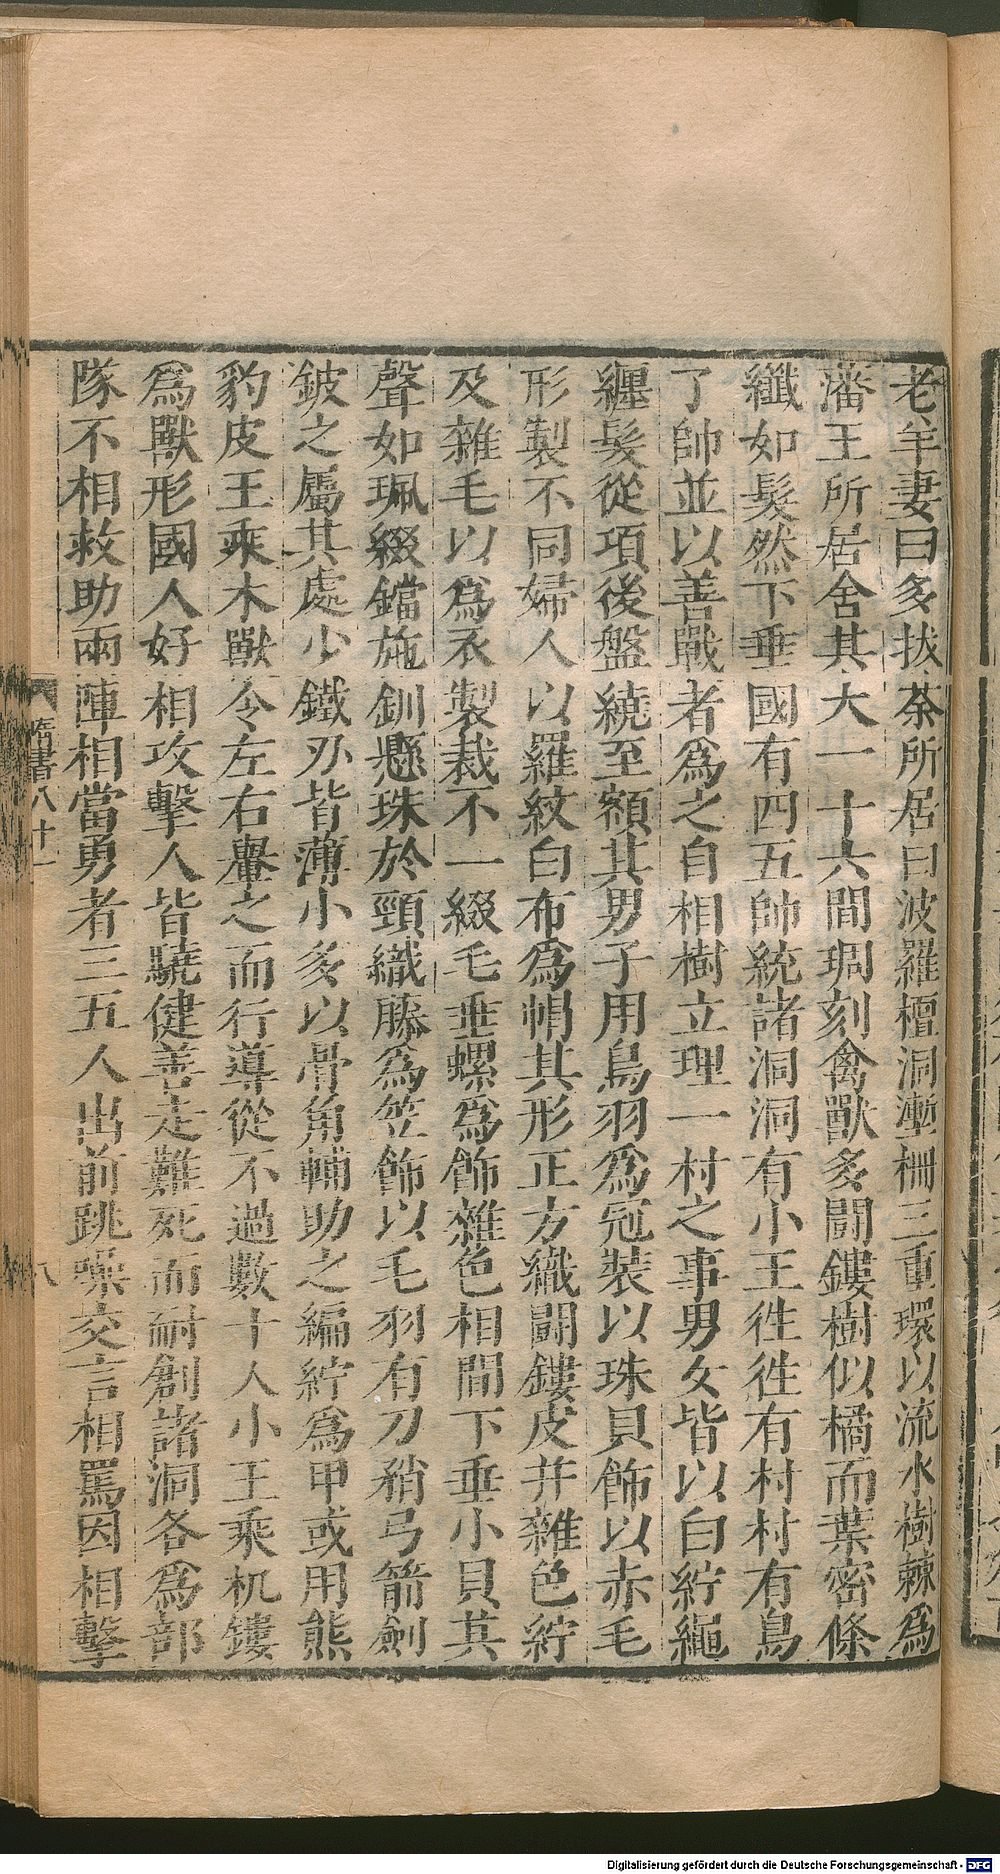 老羊妻曰多拔荼所居曰波羅檀洞塹柵三重環以流水樹棘爲
藩王所居舍其大一十六間琱刻禽獸多鬬鏤樹似橘而葉密條
纖如髮然下垂國有四五帥統諸洞洞有小王徃徃有村村有鳥
了帥並以善戰者爲之自相樹立理一村之事男女皆以白紵繩
纏髮從項後盤繞至額其男子用鳥羽爲冠裝以珠貝飾以赤毛
形製不同婦人以羅紋白布爲帽其形正方織鬬鏤皮并雜色紵
及雜毛以爲衣製裁不一綴毛垂螺爲飾雜色相間下垂小貝其
聲如珮綴鐺施釧懸珠於頸織藤爲笠飾以毛羽有刀矟弓箭劍
鈹之屬其處少鐵刃皆薄小多以骨角輔助之編紵爲甲或用熊
豹皮王乘木獸令左右轝之而行導從不過數十人小王乘机鏤
爲獸形國人好相攻擊人皆驍健善走難死而耐創諸洞各爲部
隊不相救助兩陣相當勇者三五人出前跳噪交言相罵因相擊
隋書八十一
八
Digitalisierung gefördert durch die Deutsche Forschungsgemeinschaft - DFG